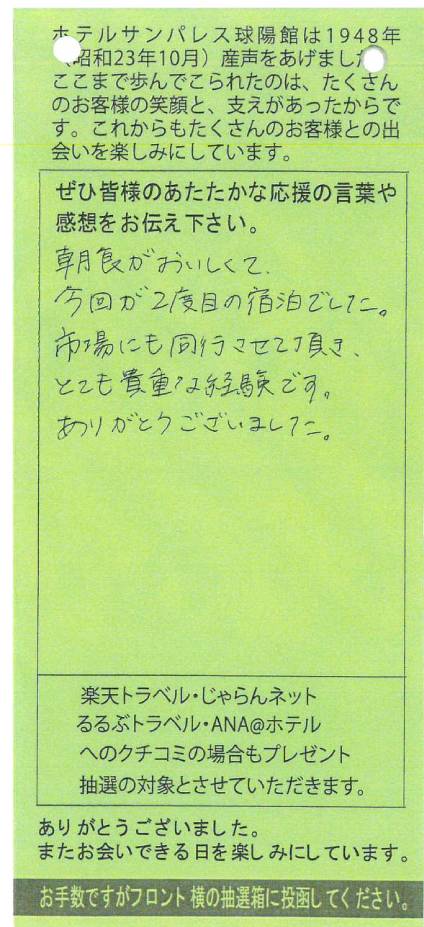 ホテルサンパレス球陽館は1948年
(昭和23年10月)産声をあげました
ここまで歩んでこられたのは、たくさん
のお客様の笑顔と、支えがあったからで
す。これからもたくさんのお客様との出
会いを楽しみにしています。
ぜひ皆様のあたたかな応援の言葉や
感想をお伝え下さい。
朝食がおいしくて、
今回が2度目の宿泊でした。
市場にも同行させて頂き、
とても貴重な経験です。
ありがとうございました。
楽天トラベル・じゃらんネット
るるぶトラベル・ANA@ホテル
へのクチコミの場合もプレゼント
抽選の対象とさせていただきます。
ありがとうございました。
またお会いできる日を楽しみにしています。
お手数ですがフロント横の抽選箱に投函してください。